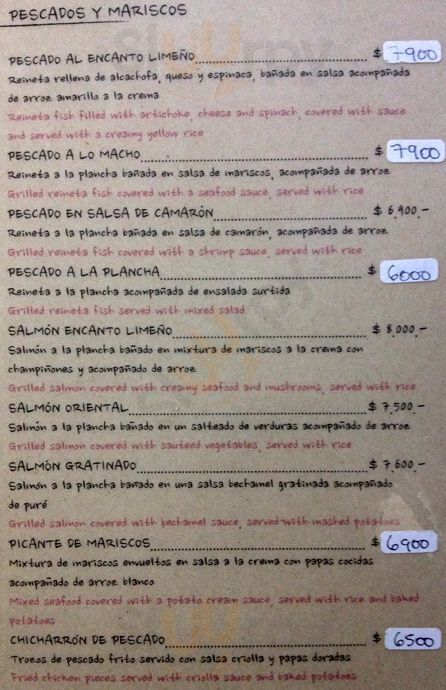 PESCADOS Y MARISCOS
PESCADO AL ENCANTO LIMEÑO $ 7900
Reineta rellena de alcachofa, queso y espinaca, bañada en salsa acompañada
de arroz amarillo a la crema
Reineta fish filled with artichoke, cheese and spinach, covered with sauce
and served with a creamy yellow rice
PESCADO A LO MACHO $ 7900
Reineta a la plancha bañada en salsa de mariscos, acompañada de arroz
Grilled reineta fish covered with a seafood sauce, served with rice
PESCADO EN SALSA DE CAMARÓN $ 6.900.-
Reineta a la plancha bañada en salsa de camarón, acompañada de arroz
Grilled reineta fish covered with a shrimp sauce, served with rice
PESCADO A LA PLANCHA $ 6000
Reineta a la plancha acompañada de ensalada surtida
Grilled reineta fish served with mixed salad
SALMÓN ENCANTO LIMEÑO $ 8.000.-
Salmón a la plancha bañado en mixtura de mariscos a la crema con
champiñones y acompañado de arroz
Grilled salmon covered with creamy seafood and mushrooms, served with rice
SALMÓN ORIENTAL $ 7.500.-
Salmón a la plancha bañado en un salteado de verduras acompañado de arroz
Grilled salmon covered with sauteed vegetables, served with rice
SALMÓN GRATINADO $ 7.600.-
Salmón a la plancha bañado en una salsa bechamel gratinada acompañado
de puré
Grilled salmon covered with bechamel sauce, served with mashed potatoes
PICANTE DE MARISCOS $ 6900
Mixtura de mariscos envueltos en salsa a la crema con papas cocidas
acompañado de arroz blanco
Mixed seafood covered with a potato cream sauce, served with rice and baked
potatoes
CHICHARRÓN DE PESCADO $ 6500
Trozos de pescado frito servido con salsa criolla y papas doradas
Fried chicken pieces served with criolla sauce and baked potatoes